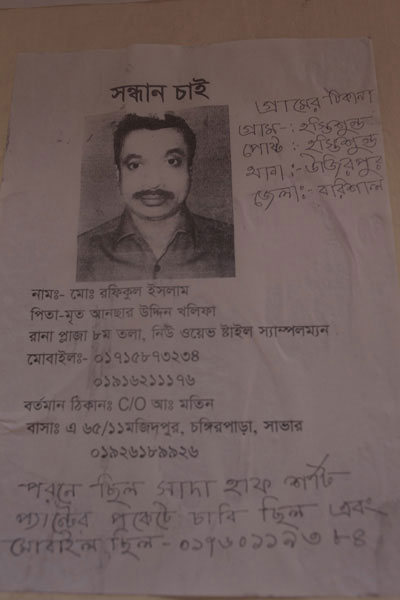 সন্ধান চাই
গ্রামের ঠিকানা
গ্রাম-: হস্তিশুন্ড
পোষ্ট : হস্তিশুন্ড
থানা:- উজিরপুর
জেলা:- বরিশাল
নামঃ- মোঃ রফিকুল ইসলাম
পিতা-মৃত আনছার উদ্দিন খলিফা
রানা প্লাজা ৮ম তলা, নিউ ওয়েভ ষ্টাইল স্যাম্পলম্যন
মোবাইলঃ- ০১৭১৫৮৭৩২৩৪
০১৯১৬২১১১৭৬
বর্তমান ঠিকানঃ C/O আঃ মতিন
বাসাঃ এ ৬৫/১১মজিদপুর, চঙ্গিরপাড়া, সাভার
০১৯২৬১৮৯৯২৬
পরনে ছিল সাদা হাফ শার্ট
প্যান্টের পকেটে চাবি ছিল এবং
মোবাইল ছিল - ০১৭৬০১১৯৩৮৪